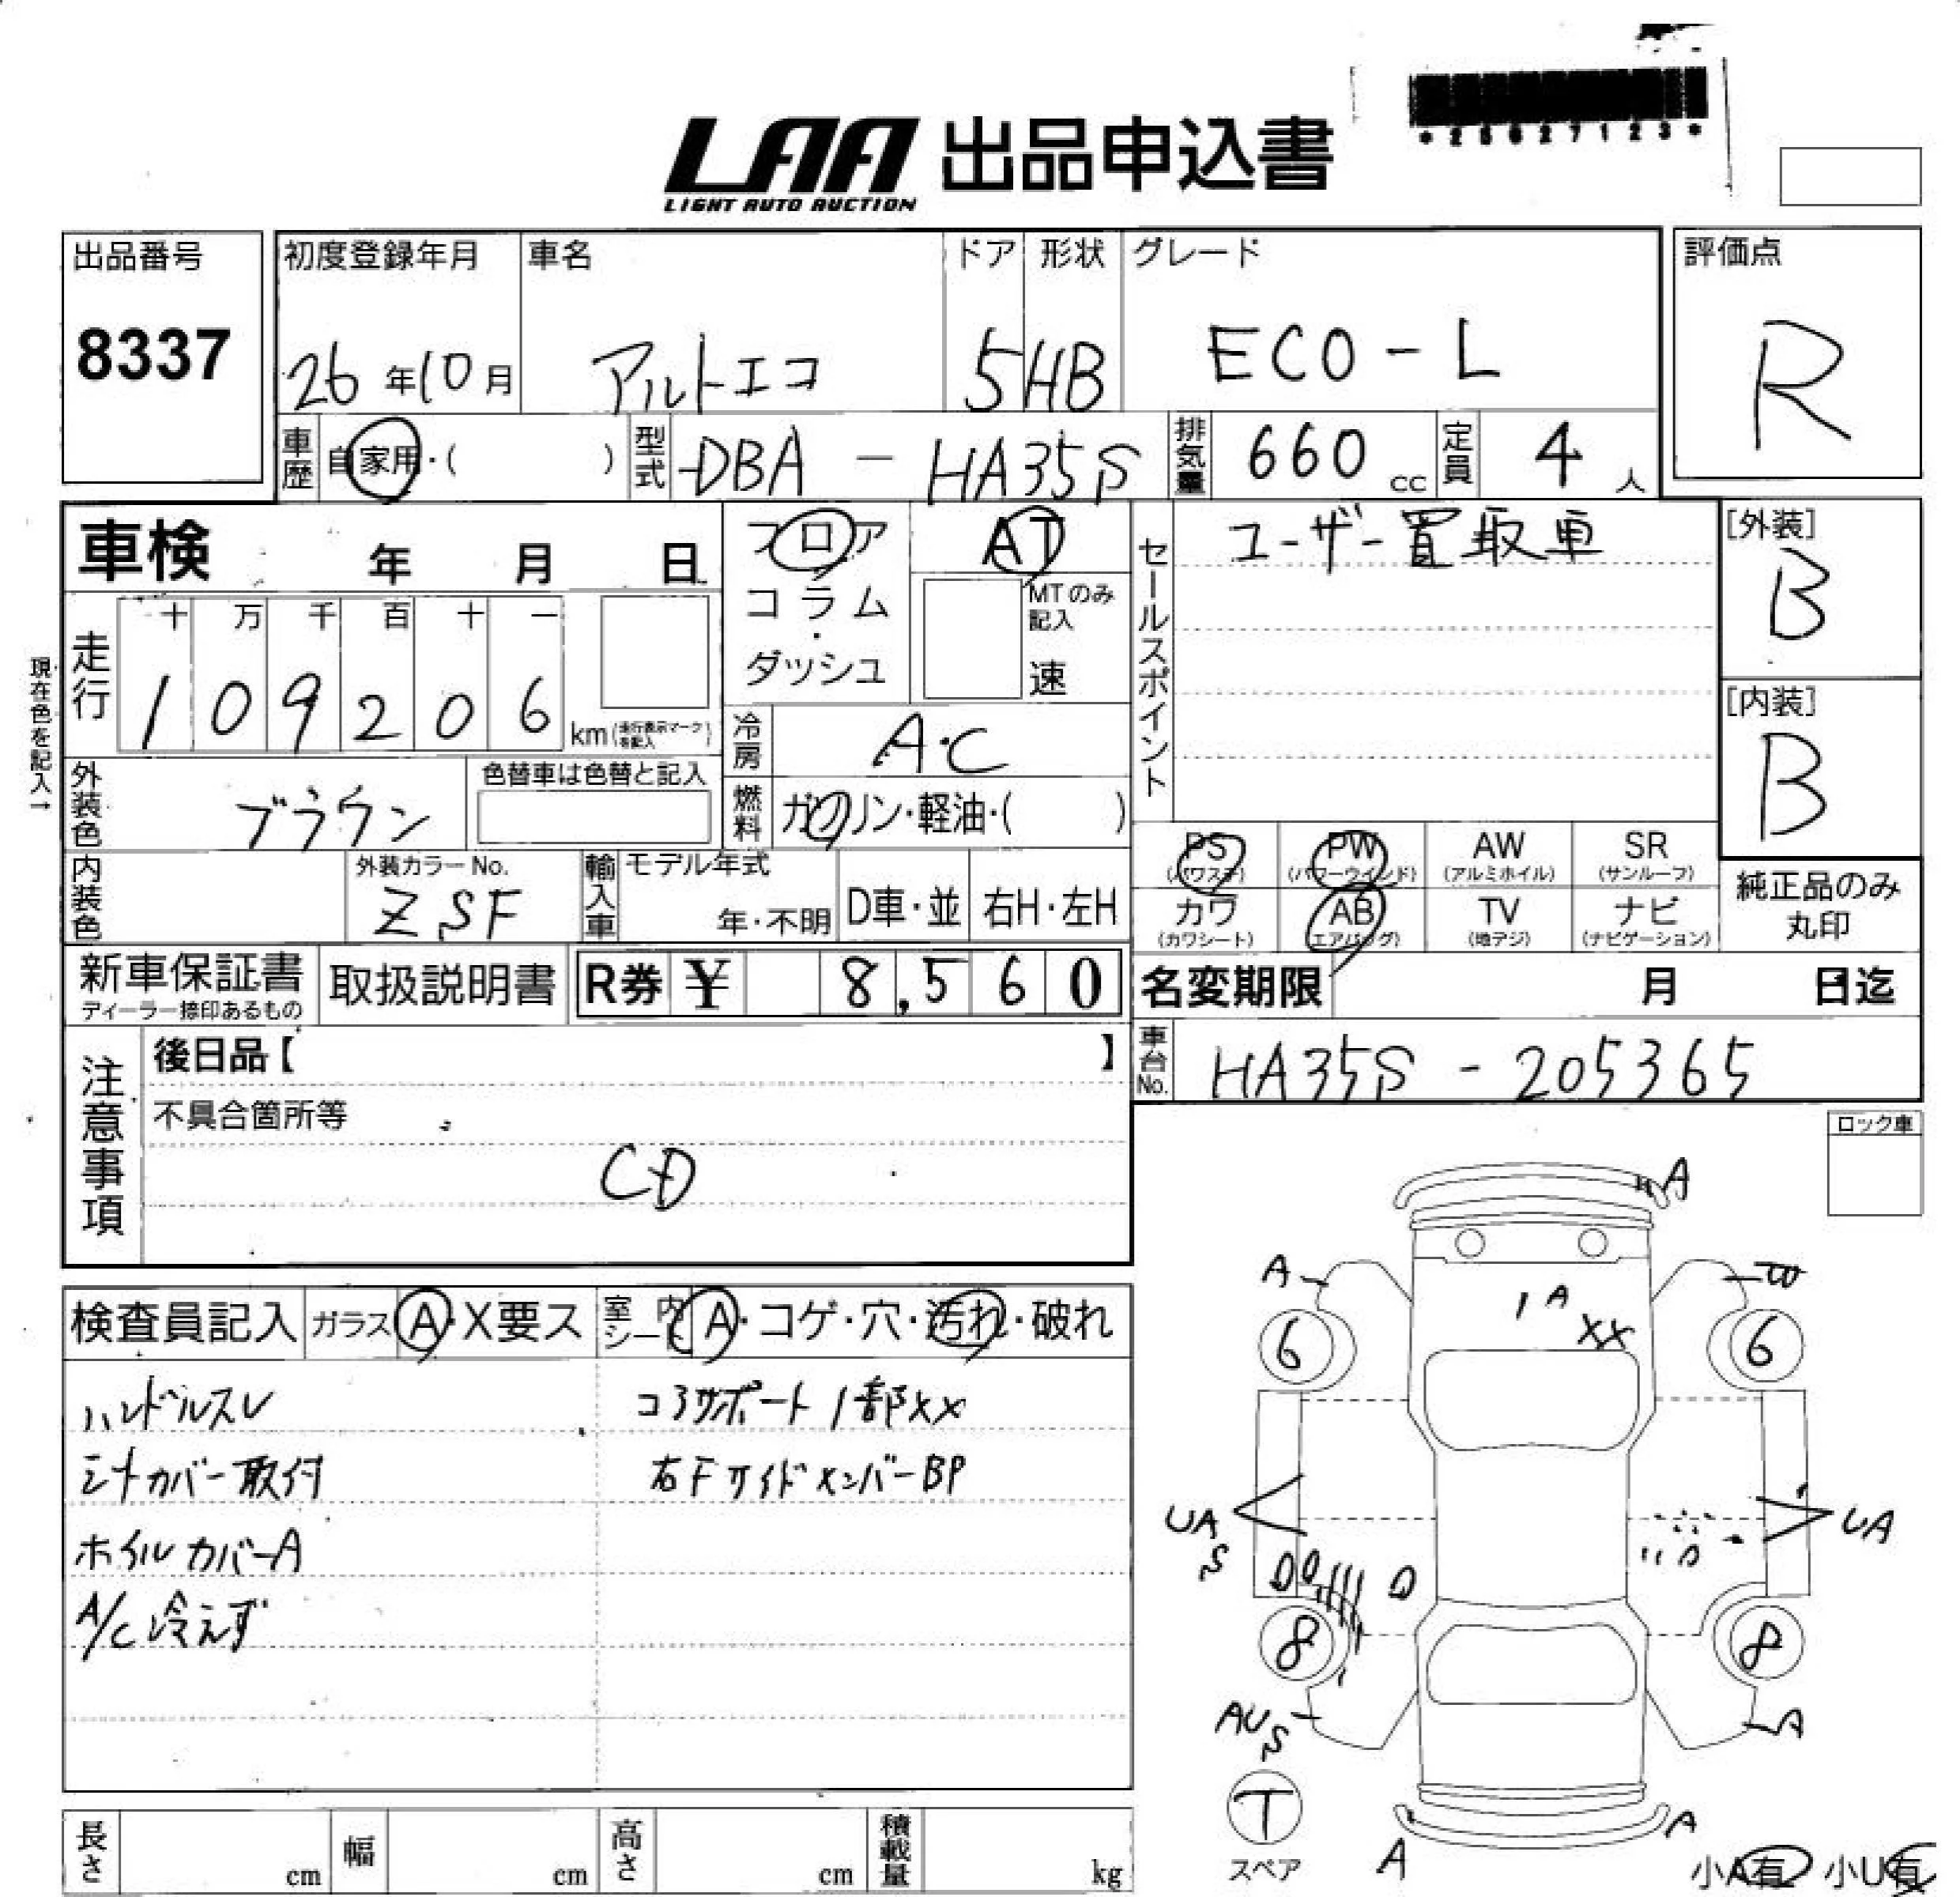 *25627123*
LAA 出品申込書
LIGHT AUTO AUCTION
出品番号 初度登録年月 車名 ドア 形状 グレード 評価点
8337 26年10月 アルトエコ 5 HB ECO-L R
車歴 自家用・( ) 型式 DBA - HA35S 排気量 660 cc 定員 4 人
車検 年 月 日 フロア AT セールスポイント ユーザー買取車 [外装]
B
コラム MTのみ記入
・
ダッシュ 速
現在色を記入→
走行 十 万 千 百 十 一
1 0 9 2 0 6 km (走行表示マークを記入)
[内装]
B
冷房 A・C
外装色 ブラウン 色替車は色替と記入 燃料 ガソリン・軽油・( )
PS PW AW SR
(パワステ) (パワーウインド) (アルミホイル) (サンルーフ)
内装色 外装カラーNo. 輸入車 モデル年式
ZSF 年・不明 D車・並 右H・左H
カワ AB TV ナビ
(カワシート) (エアバッグ) (地デジ) (ナビゲーション)
純正品のみ
丸印
新車保証書 取扱説明書 R券 ¥ 8,560 名変期限 月 日迄
ディーラー捺印あるもの
注意事項 後日品【 】 車台No. HA35S - 205365
不具合箇所等
CD
ロック車
検査員記入 ガラス A・X要ス 室内シート A・コゲ・穴・汚れ・破れ
ハンドルスレ コアサポート1部XX
シートカバー取付 右FサイドメンバーBP
ホイルカバーA
A/C 冷えず
A
A
1 A
XX
6 6
UA
S
UA
8 8
AU
S
A
T
スペア
A A
小A有 小U有
長さ cm 幅 cm 高さ cm 積載量 kg